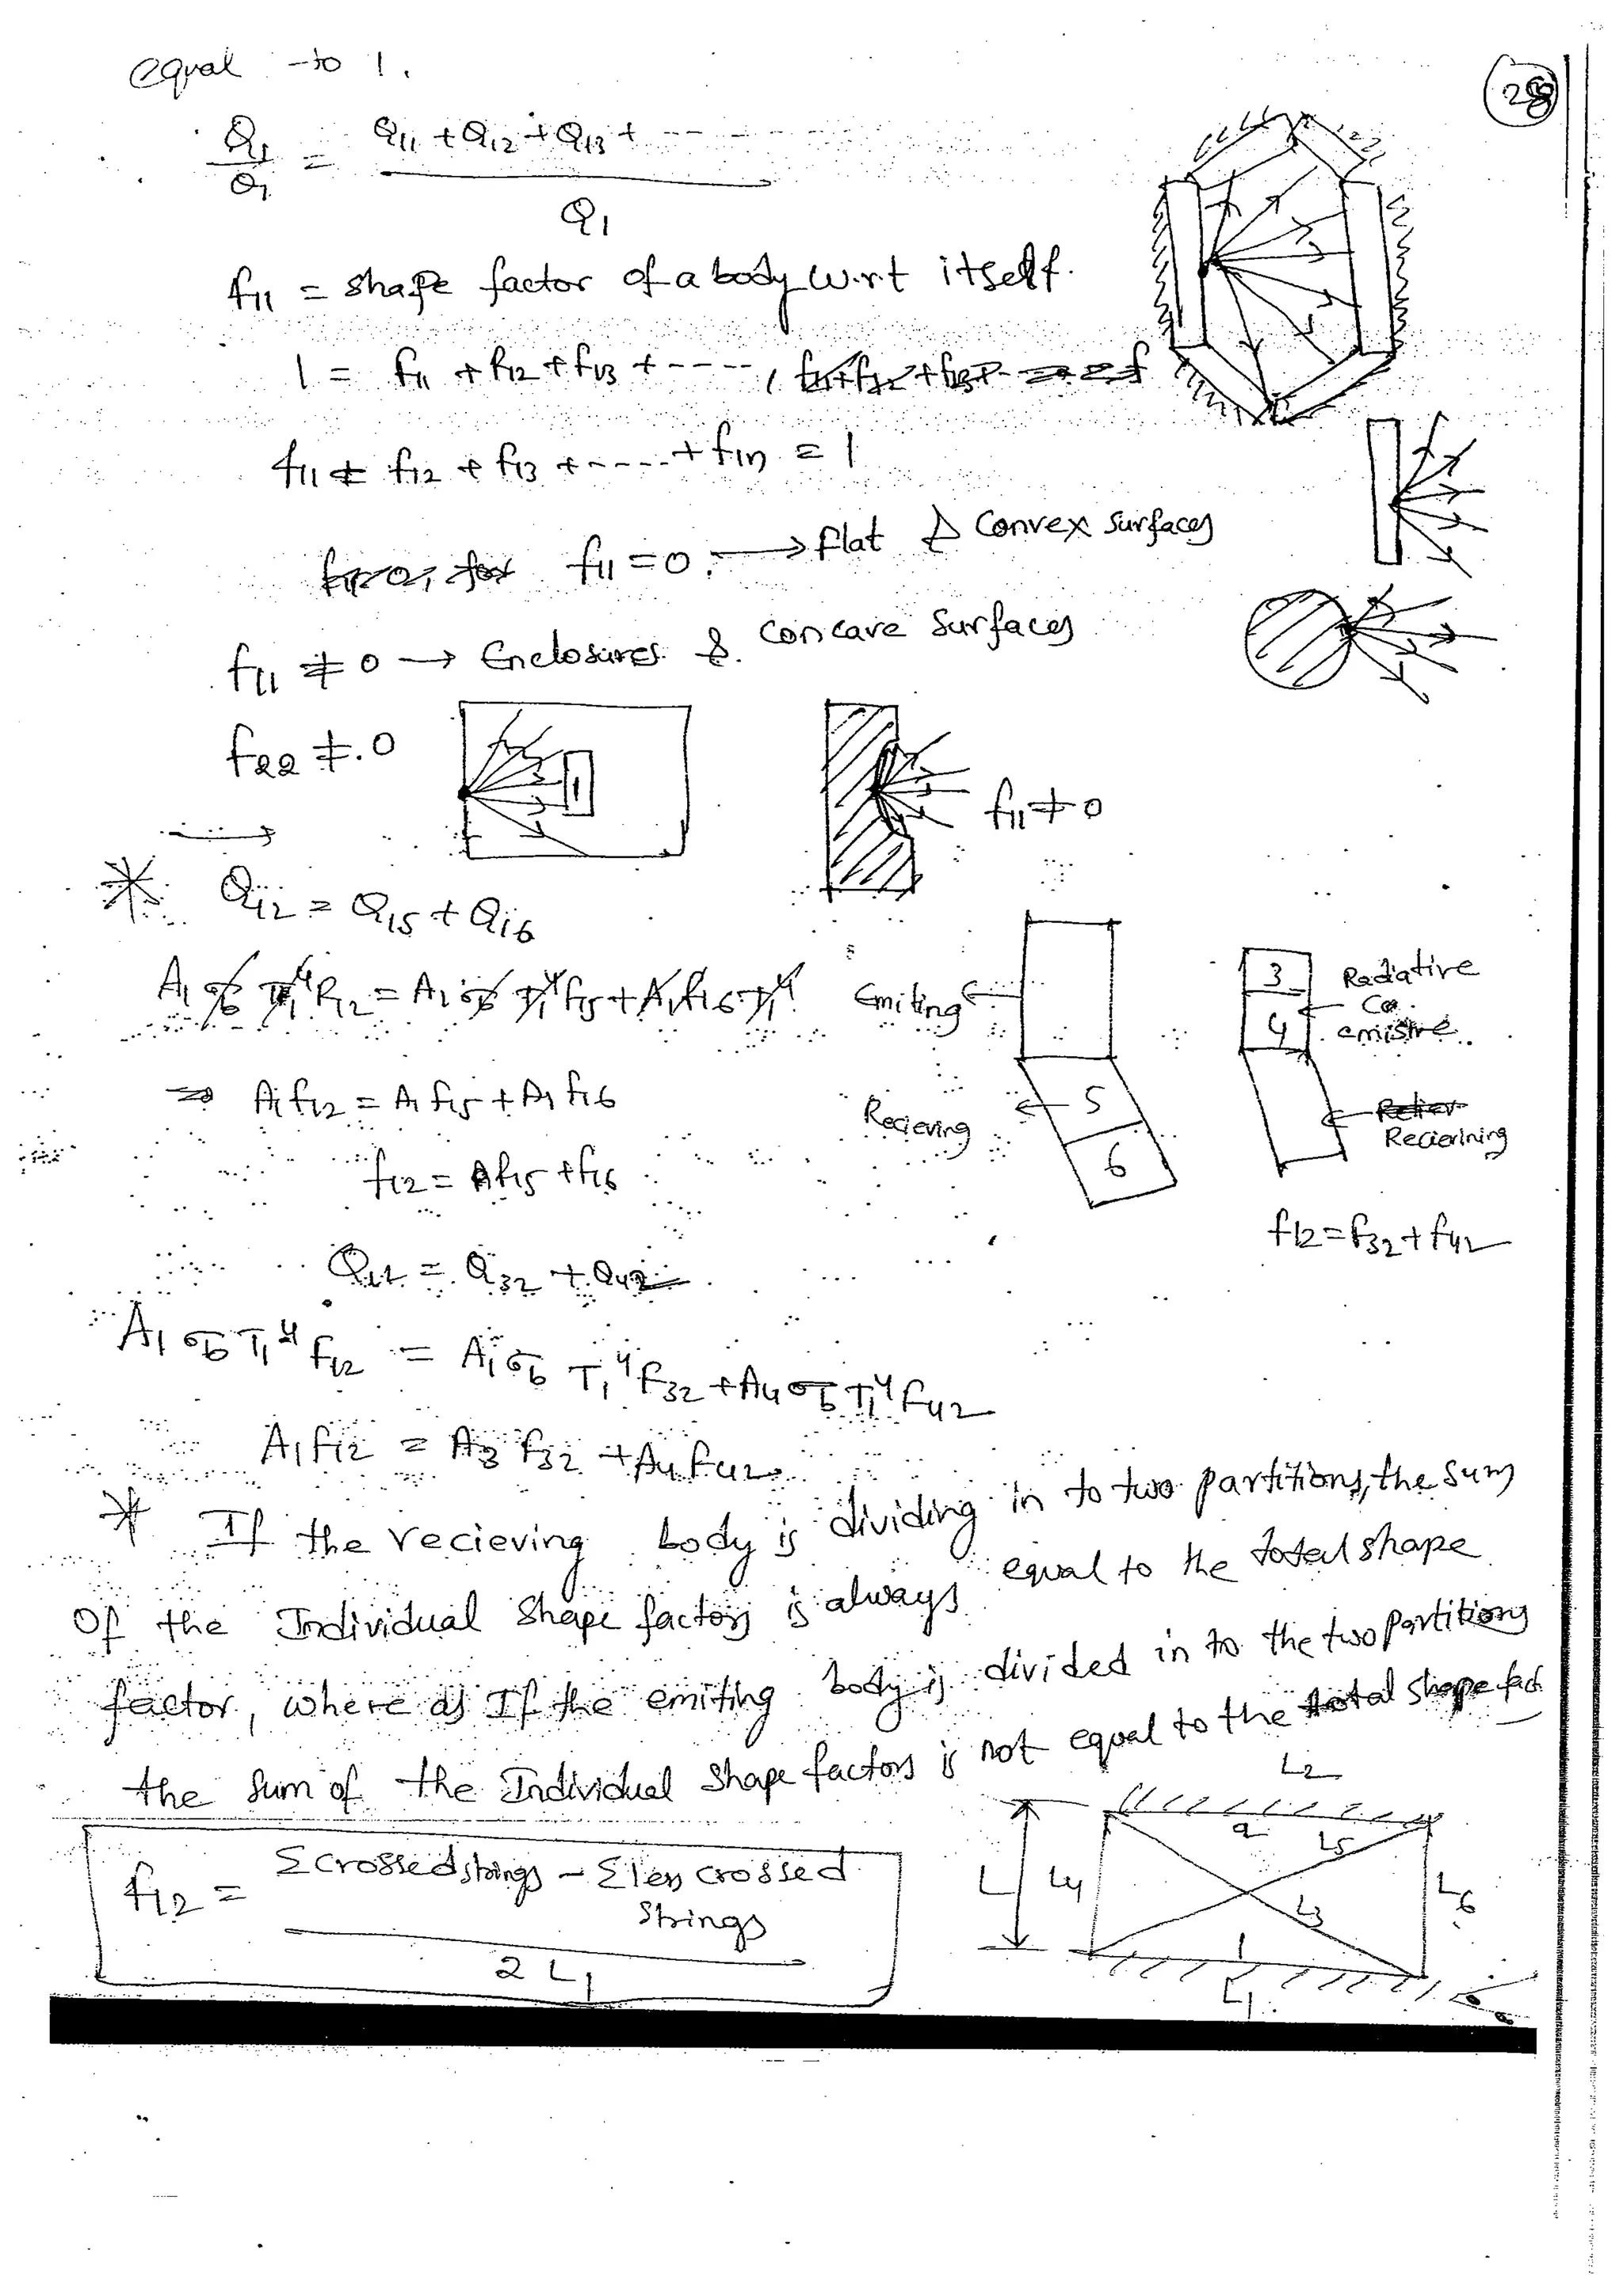 equal to 1.
28
Q1/Q1 = (Q11 + Q12 + Q13 + -----)/Q1
f11 = shape factor of a body w.r.t itself.
1 = f11 + f12 + f13 + ----,
f11 + f12 + f13 + ----- + f1n = 1
f11 = 0. → flat & Convex surfaces
f11 ≠ 0 → Enclosures & Concave Surfaces
f22 ≠ 0
1
f11 ≠ 0
* Q12 = Q15 + Q16
A1 σb T1^4 f12 = A1 σb T1^4 f15 + A1 f16 T1^4
Emiting
3
4
Radiative
emistre
⇒ A1 f12 = A1 f15 + A1 f16
Recieving
5
6
Recierining
f12 = f15 + f16
f12 = f32 + f42
Q12 = Q32 + Q42
A1 σb T1^4 f12 = A1 σb T1^4 f32 + A4 σb T1^4 f42
A1 f12 = A3 f32 + A4 f42
* If the recieving body is dividing in to two partitions, the sum
Of the Individual shape factors is always equal to the total shape
factor, where as If the emiting body is divided in to the two partitions
the sum of the Individual shape factors is not equal to the total shape fact
f12 = (Σ crossed strings - Σ less crossed strings)/2 L1
L2
2
L5
L
L4
L3
L6
1
L1